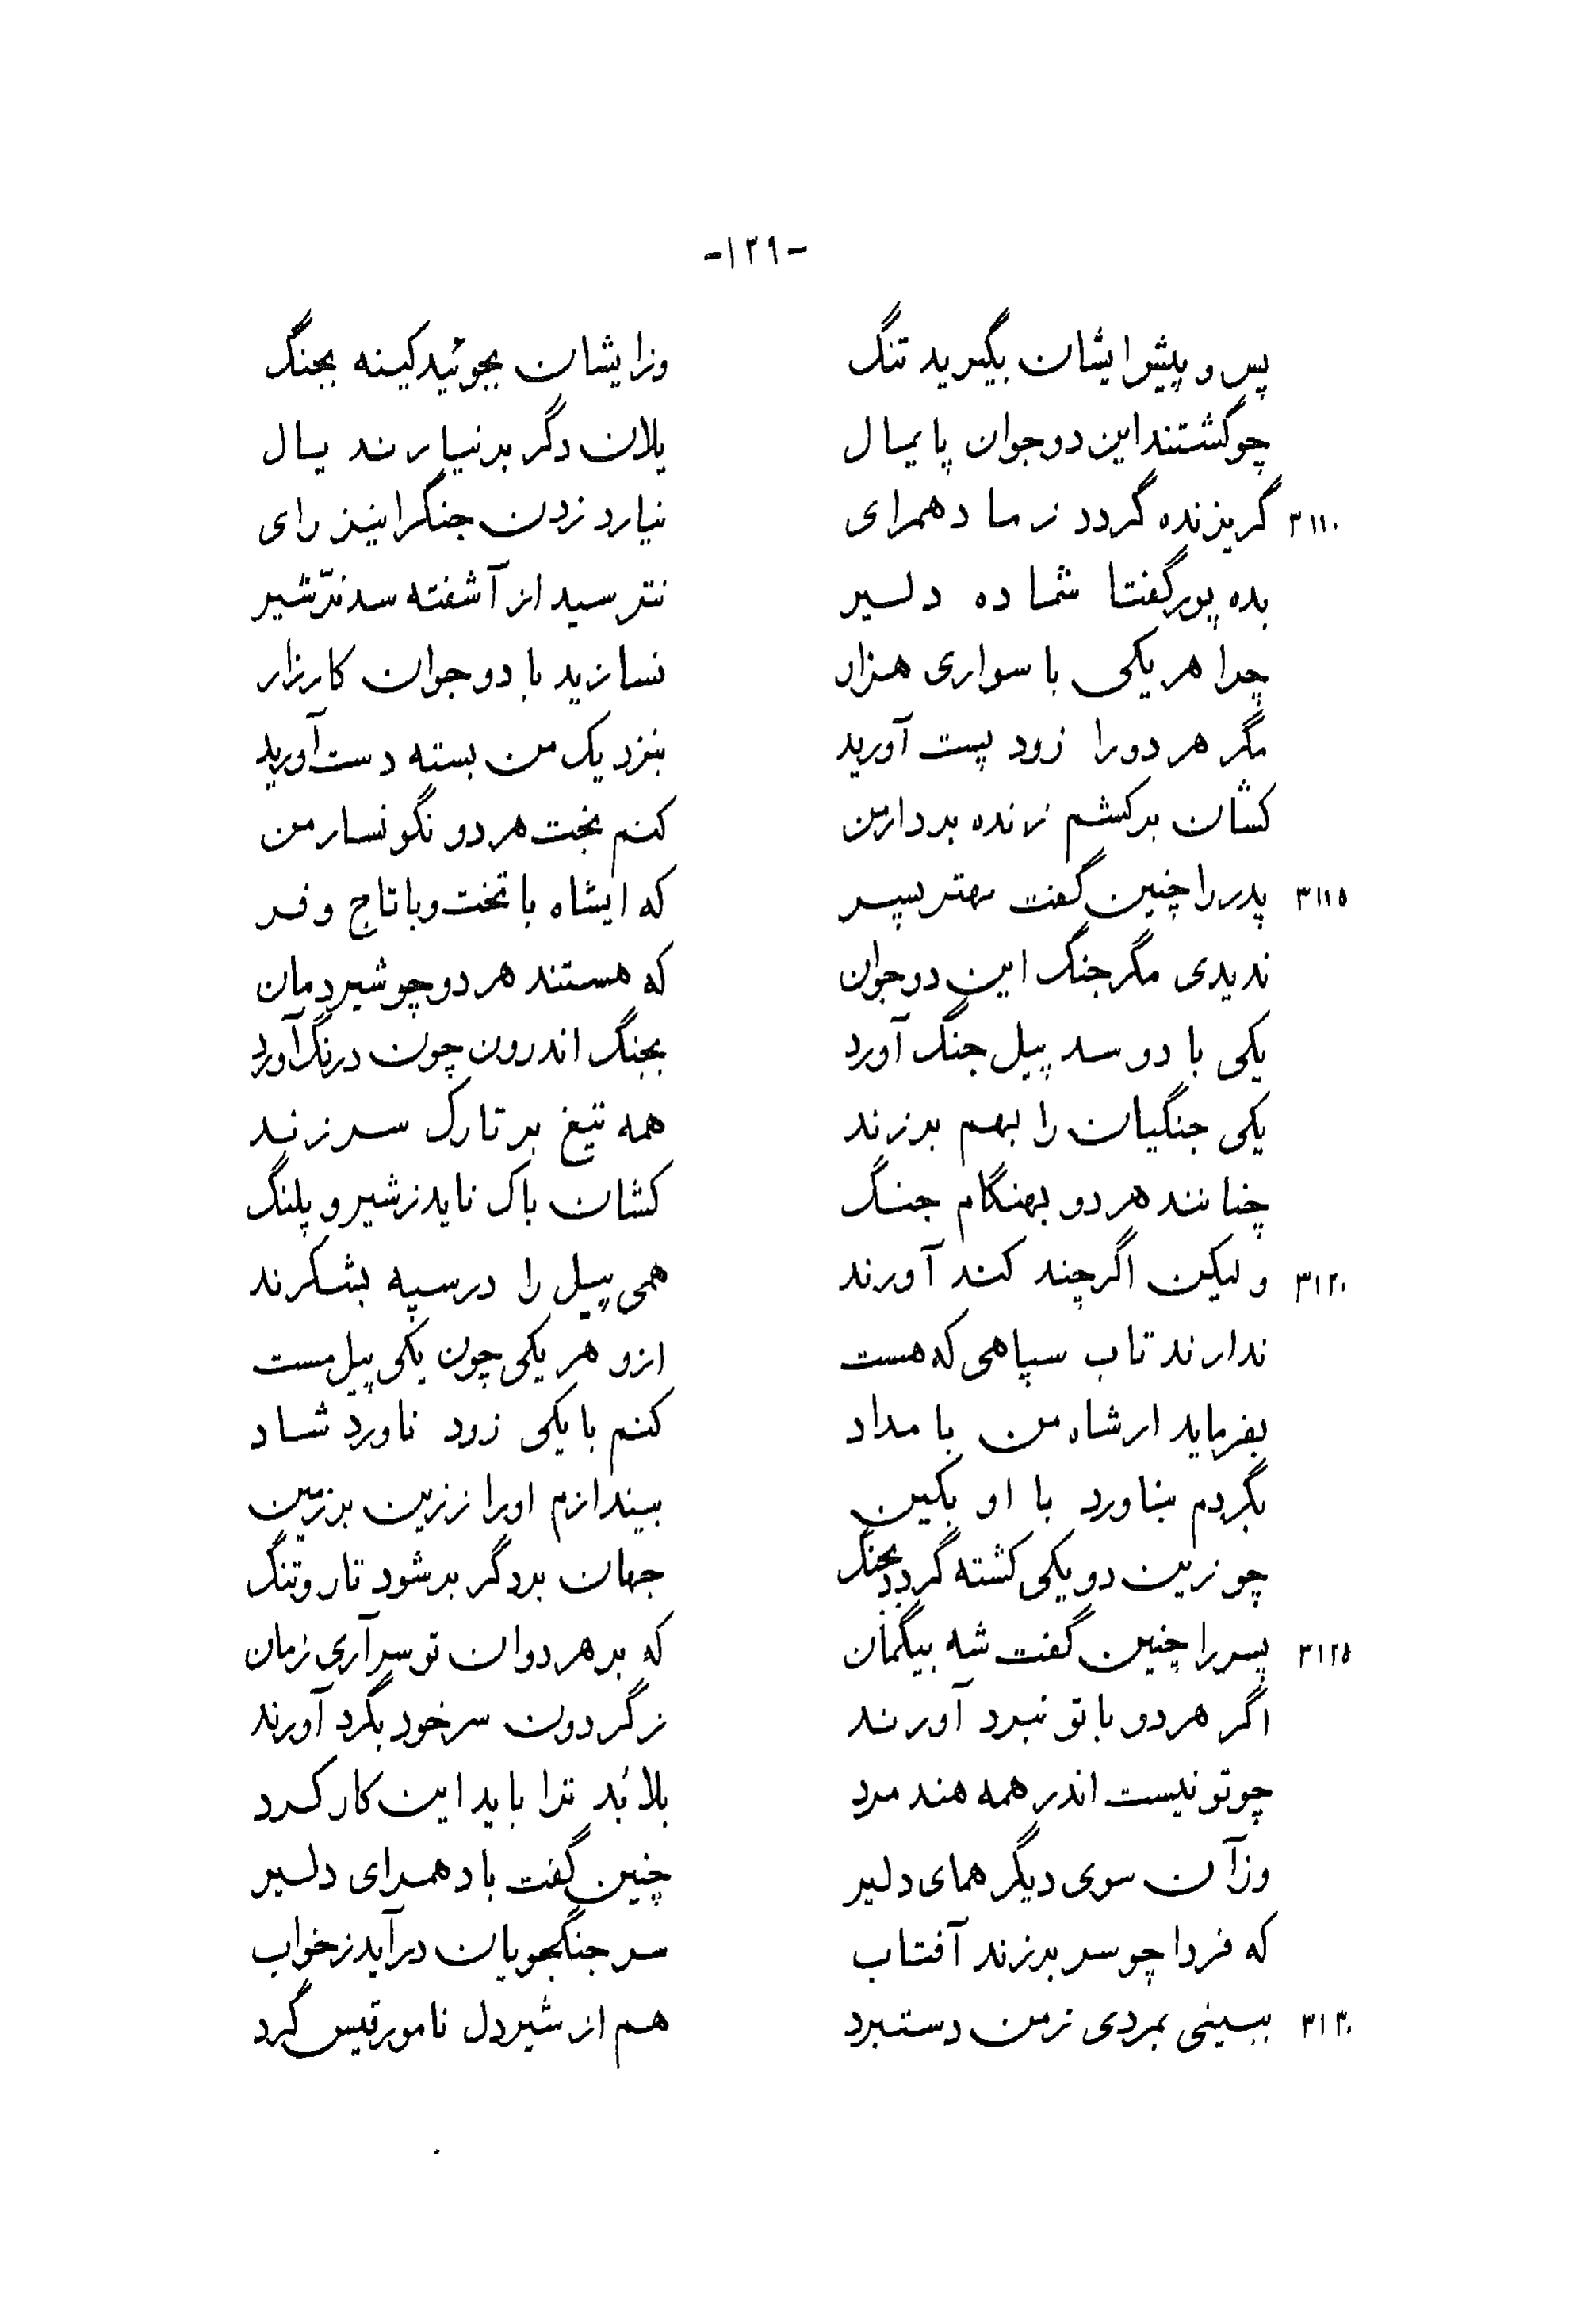 -۱۳۹-
پس و پیش ایشان بگیرید تنگ وزایشان بجوئید کینه بجنگ
چو گشتند این دو جوان پایمال یلان دگر برنیارند یال
۳۱۱۰ گریزنده گردد ز ما دهمرای نیارد زدن جنگرا نیز رای
بده پور گفتا شما ده دلیر نترسید از آشفته سد نرّ شیر
چرا هر یکی با سواری هزار نسازید با دو جوان کارزار
مگر هر دو را زود پست آورید بنزدیک من بسته دست آورید
کشان برکشم زنده بر دار من کنم بخت هر دو نگونسار من
۳۱۱۵ پدر را چنین گفت مهتر پسر که ایشاه با تخت و با تاج و فر
ندیدی مگر جنگ این دو جوان که هستند هر دو چو شیر دمان
یکی با دو سد پیل جنگ آورد بجنگ اندرون چون درنگ آورد
یکی جنگیان را بهم برزند همه تیغ بر تارک سر زند
چنانند هر دو بهنگام جنگ کشان باک ناید ز شیر و پلنگ
۳۱۲۰ ولیکن اگر چند کند آورند همی پیل را در سپه بشکرند
ندارند تاب سپاهی که هست ازو هر یکی چون یکی پیل مست
بفرماید ار شاه من بامداد کنم با یکی زود ناورد شاد
بگردم بناورد با او بکین بیندازم او را ز زین بر زمین
چو زین دو یکی کشته گردد بجنگ جهان بر دگر بر شود تار و تنگ
۳۱۲۵ پسر را چنین گفت شه بیگمان که بر هر دوان تو سرآری زمان
اگر هر دو با تو نبرد آورند ز گردون سر خود بگرد آورند
چو تو نیست اندر همه هند مرد بلابُد ترا باید این کار کرد
وزآن سوی دیگر همای دلیر چنین گفت با دهمرای دلیر
که فردا چو سر برزند آفتاب سر جنگجویان درآید ز خواب
۳۱۳۰ ببینی بمردی ز من دستبرد هم از شیردل نامور قیس گرد